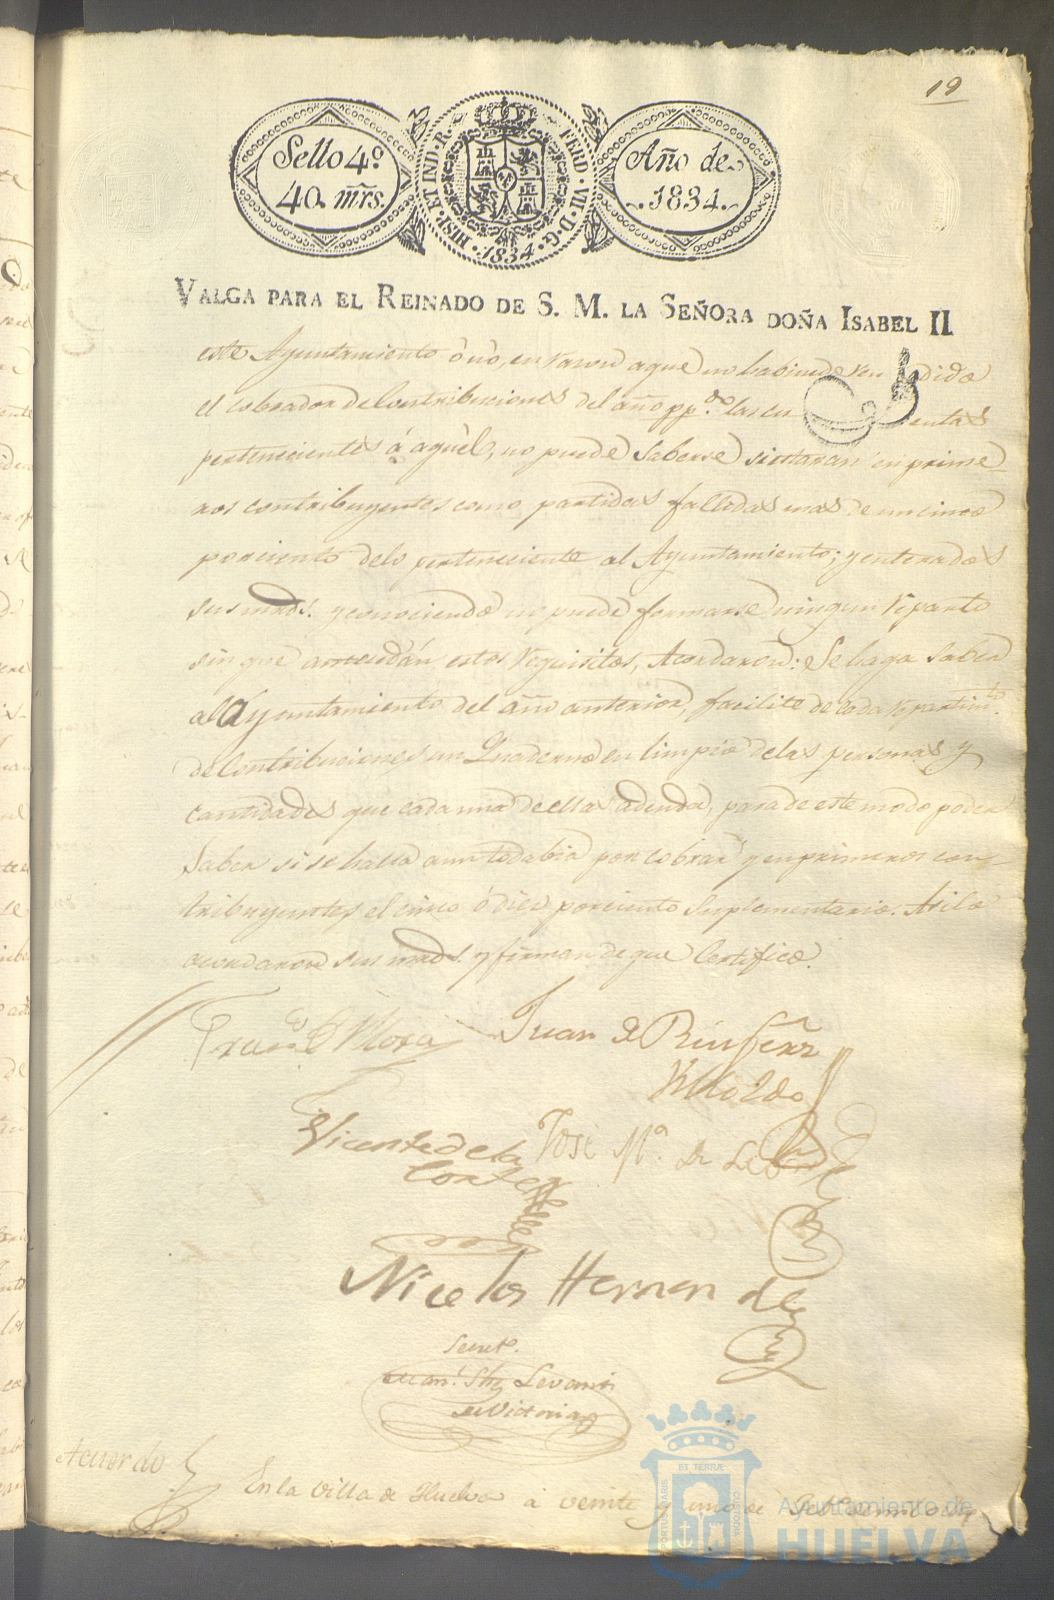 19
Sello 4º
40. mr̃s.
HISP. ET IND. R.
FERD. VII. D. G.
1834
Año de
1834.
VALGA PARA EL REINADO DE S. M. LA SEÑORA DOÑA ISABEL II
este Ayuntamiento ò nò, en razon a que no habiendo ren dido
el cobrador de Contribuciones del año pp.do las cu entas
pertenecientes á aquèl, no puede Saberse si estaran en prime-
ros contribuyentes como partidas fallidas mas de un cinco
por ciento de lo perteneciente al Ayuntamiento; y enterados
sus mrds. y conociendo no puede formarse ningun Reparto
sin que antecedán estos Requisitos, Acordaron: Se haga saber
al Ayuntamiento del año anterior, facilite de cada Repartim.to
de Contribuciones un Quaderno en limpio de las personas y
cantidades que cada una de ellas adeuda, para de este modo poder
Saber si se halla aun todabia por cobrar y en primeros con-
tribuyentes el cinco ó diez por ciento Suplementario. Asi lo
acordaron sus mrds. y firman de que Certifico.
Fran.co Mora
Juan de
Vicente de la
Corte
José Mª. de León
Nicolas Hernandez
Secret.o
Man.l
de Victoria
Acuerdo
En la Villa de Huelva a veinte y uno de
ET TERRÆ
PORTUS MARIS
CUSTODIA
Ayuntamiento de
HUELVA